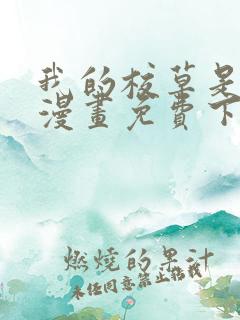 我的校草是
漫畫免費下
燃燒的果汁
未任同意禁止转载